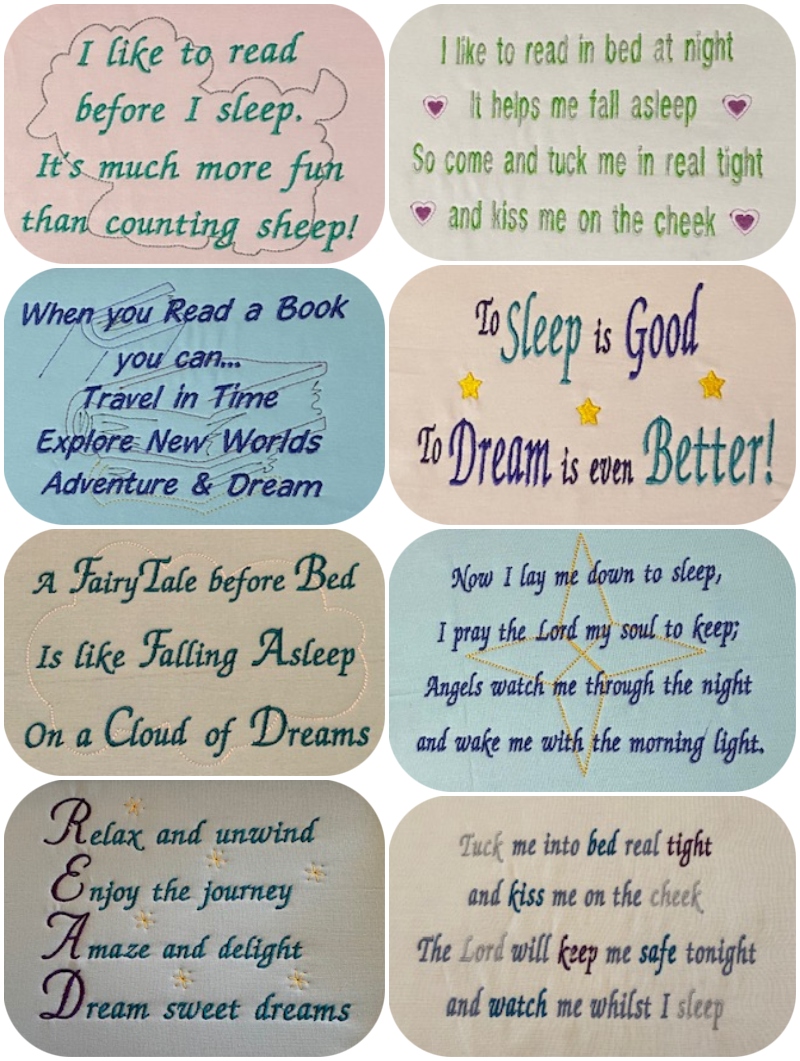 I like to read
before I sleep.
It's much more fun
than counting sheep!
I like to read in bed at night
It helps me fall asleep
So come and tuck me in real tight
and kiss me on the cheek
When you Read a Book
you can...
Travel in Time
Explore New Worlds
Adventure & Dream
To Sleep is Good
To Dream is even Better!
A FairyTale before Bed
Is like Falling Asleep
On a Cloud of Dreams
Now I lay me down to sleep,
I pray the Lord my soul to keep;
Angels watch me through the night
and wake me with the morning light.
Relax and unwind
Enjoy the journey
Amaze and delight
Dream sweet dreams
Tuck me into bed real tight
and kiss me on the cheek
The Lord will keep me safe tonight
and watch me whilst I sleep